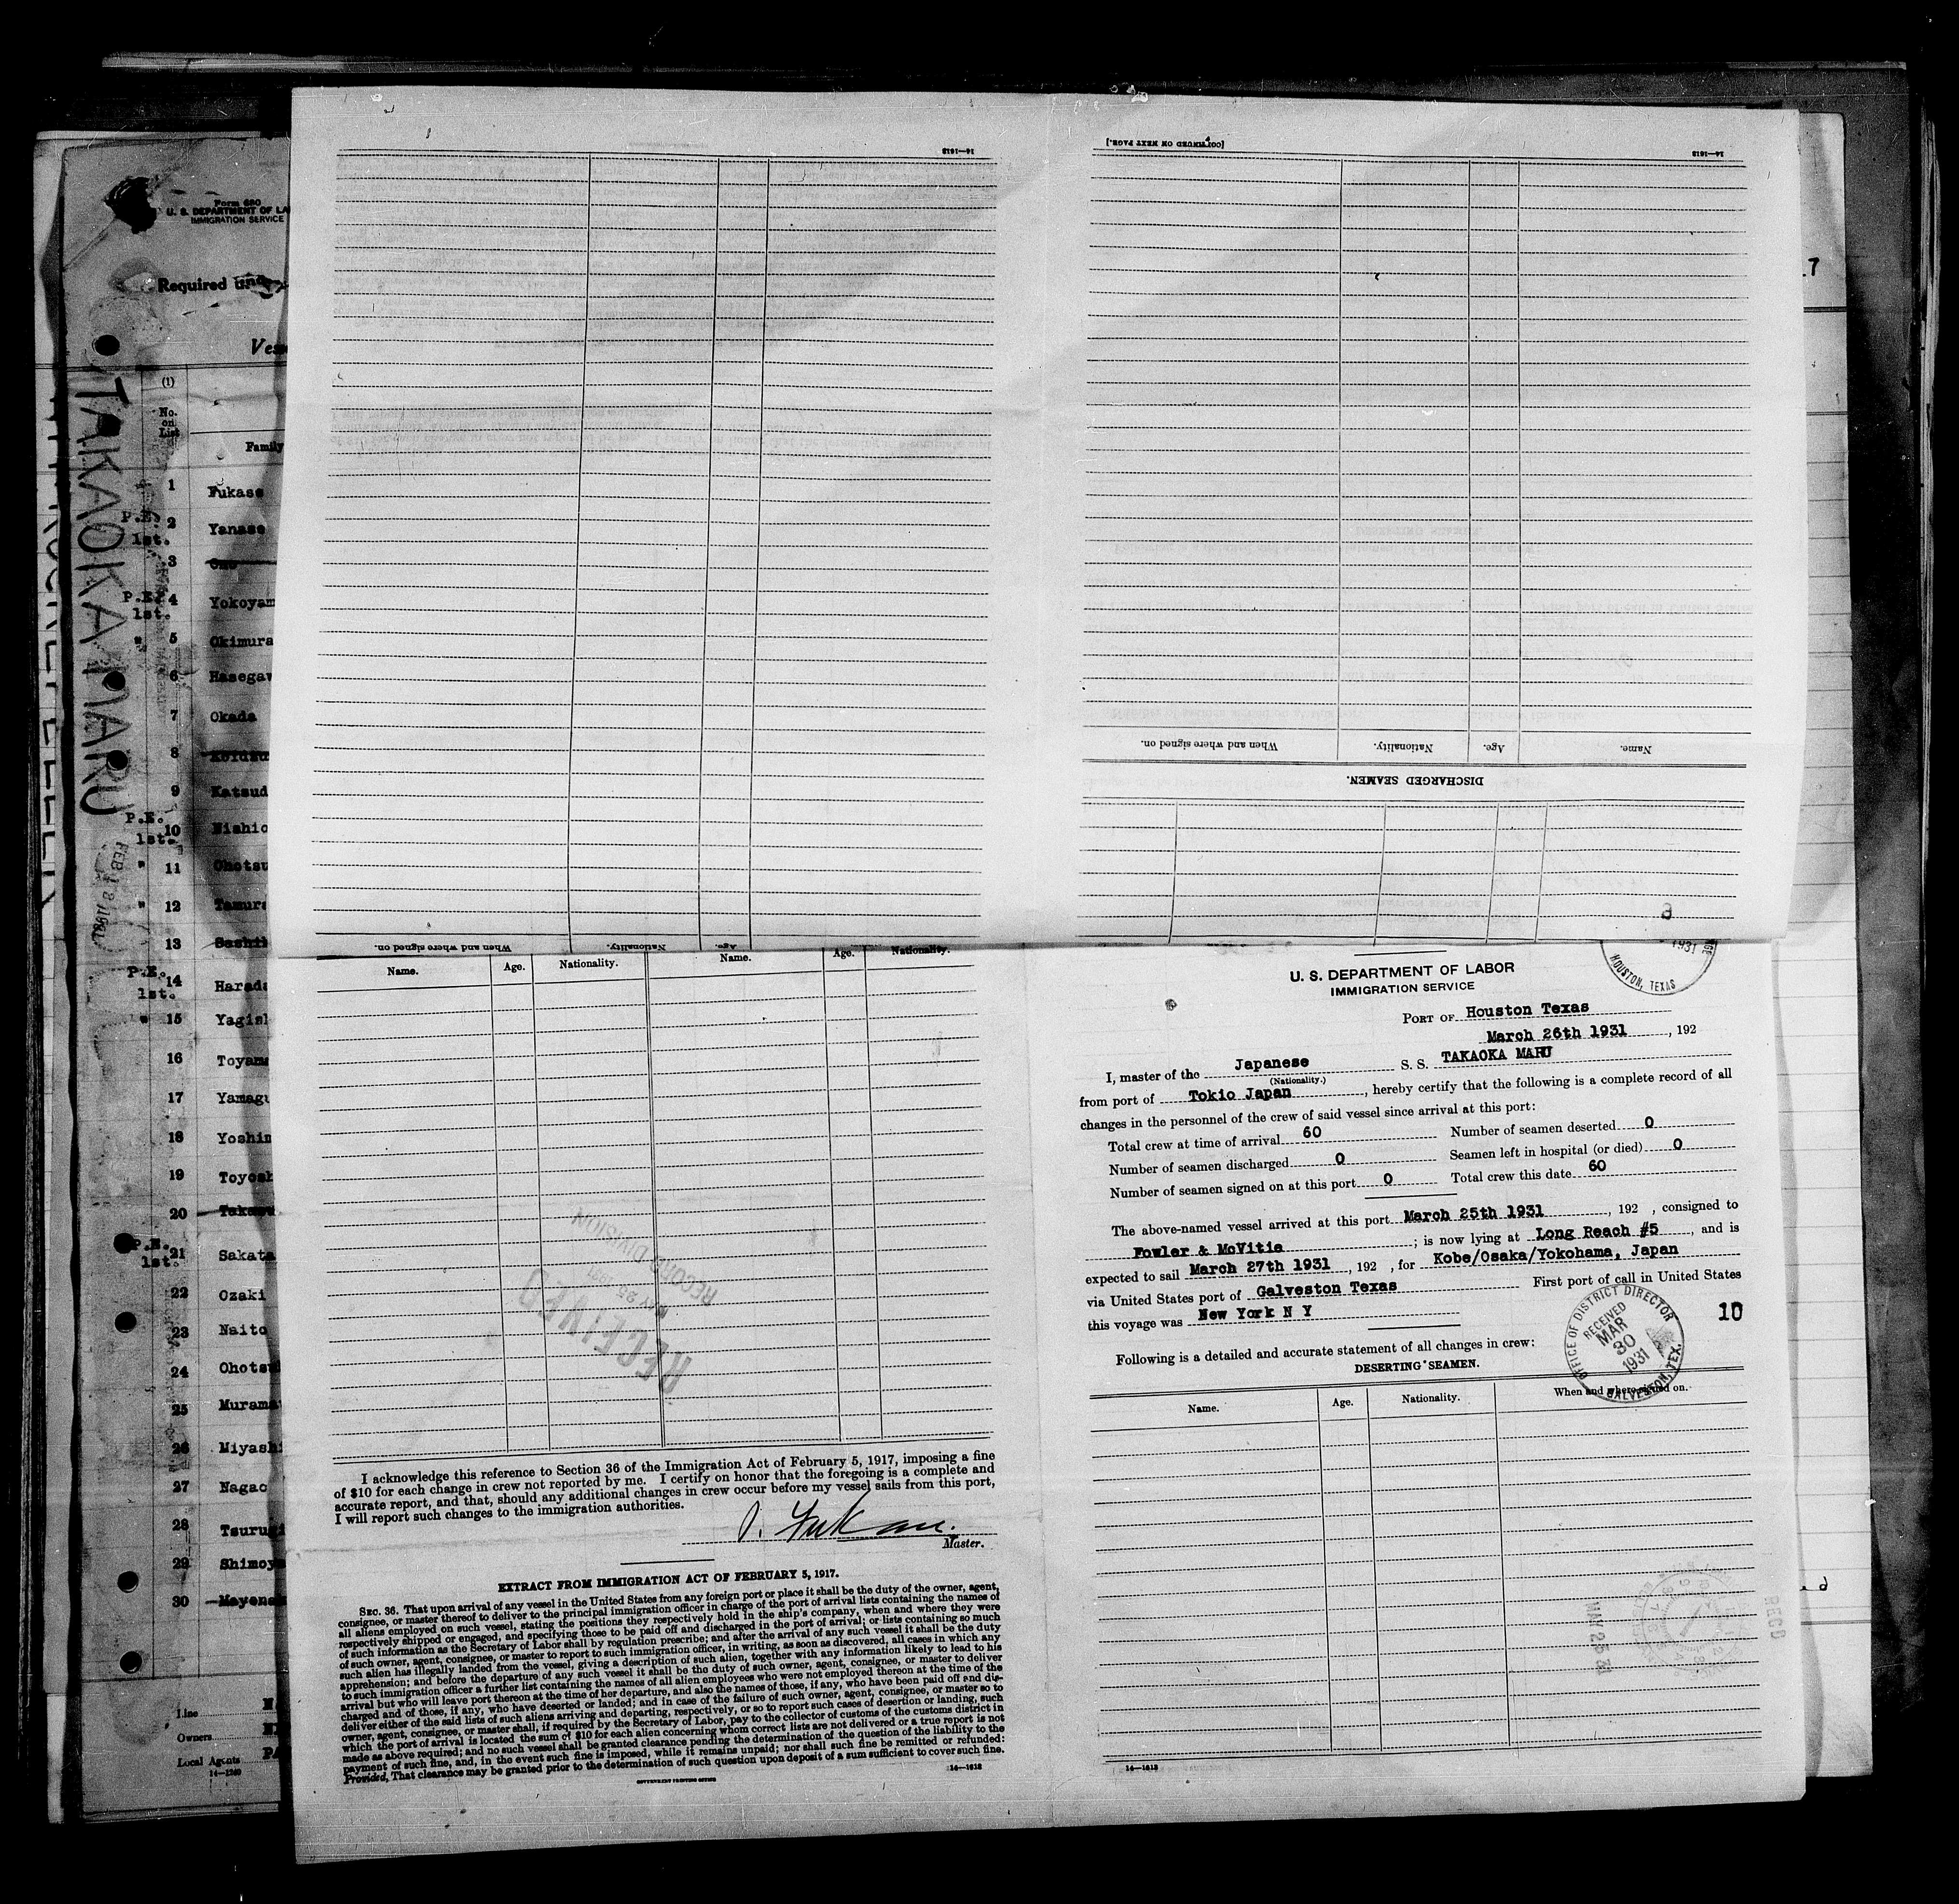 Form 680
U. S. DEPARTMENT OF LA
IMMIGRATION SERVICE
Required
Ves
TAKAOKA MARU
FEB 18 1931
(1)
No.
on
List
Family
1 Fukase
P.E. 1st. 2 Yanase
3
P.E. 1st. 4 Yokoyam
" 5 Okimura
6 Hasegaw
7 Okada
8 Koidzu
9 Katsud
P.E. 1st. 10 Nishio
" 11 Ohotsu
" 12 Tamura
13 Sashi
P.E. 1st. 14 Harada
" 15 Yagish
16 Toyama
17 Yamagu
18 Yoshim
19 Toyosh
20 Takamu
P.E. 1st. 21 Sakata
22 Ozaki
23 Naito
24 Ohotsu
25 Murama
26 Miyashi
27 Nagao
28 Tsurugi
29 Shimoy
30 Mayena
Line
Owners
Local Agents PA
14—1240
14—1612
When and where signed on. Nationality. Age.
[CONTINUED ON NEXT PAGE.]
14—1612
When and where signed on. Nationality. Age. Name.
DISCHARGED SEAMEN.
Name. Age. Nationality. Name. Age. Nationality.
RECEIVED
MAY 25 1931
RECORD DIVISION
I acknowledge this reference to Section 36 of the Immigration Act of February 5, 1917, imposing a fine
of $10 for each change in crew not reported by me. I certify on honor that the foregoing is a complete and
accurate report, and that, should any additional changes in crew occur before my vessel sails from this port,
I will report such changes to the immigration authorities.
Master.
EXTRACT FROM IMMIGRATION ACT OF FEBRUARY 5, 1917.
SEC. 36. That upon arrival of any vessel in the United States from any foreign port or place it shall be the duty of the owner, agent,
consignee, or master thereof to deliver to the principal immigration officer in charge of the port of arrival lists containing the names of
all aliens employed on such vessel, stating the positions they respectively hold in the ship's company, when and where they were
respectively shipped or engaged, and specifying those to be paid off and discharged in the port of arrival; or lists containing so much
of such information as the Secretary of Labor shall by regulation prescribe; and after the arrival of any such vessel it shall be the duty
of such owner, agent, consignee, or master to report to such immigration officer, in writing, as soon as discovered, all cases in which any
such alien has illegally landed from the vessel, giving a description of such alien, together with any information likely to lead to his
apprehension; and before the departure of any such vessel it shall be the duty of such owner, agent, consignee, or master to deliver
to such immigration officer a further list containing the names of all alien employees who were not employed thereon at the time of the
arrival but who will leave port thereon at the time of her departure, and also the names of those, if any, who have been paid off and dis-
charged and of those, if any, who have deserted or landed; and in case of the failure of such owner, agent, consignee, or master so to
deliver either of the said lists of such aliens arriving and departing, respectively, or so to report such cases of desertion or landing, such
owner, agent, consignee, or master shall, if required by the Secretary of Labor, pay to the collector of customs of the customs district in
which the port of arrival is located the sum of $10 for each alien concerning whom correct lists are not delivered or a true report is not
made as above required; and no such vessel shall be granted clearance pending the determination of the question of the liability to the
payment of such fine, and, in the event such fine is imposed, while it remains unpaid; nor shall such fine be remitted or refunded:
Provided, That clearance may be granted prior to the determination of such question upon deposit of a sum sufficient to cover such fine.
GOVERNMENT PRINTING OFFICE 14—1612
1931
HOUSTON, TEXAS
U. S. DEPARTMENT OF LABOR
IMMIGRATION SERVICE
PORT OF Houston Texas
March 26th 1931, 192
I, master of the Japanese S. S. TAKAOKA MARU
(Nationality.)
from port of Tokio Japan, hereby certify that the following is a complete record of all
changes in the personnel of the crew of said vessel since arrival at this port:
Total crew at time of arrival 60 Number of seamen deserted 0
Number of seamen discharged 0 Seamen left in hospital (or died) 0
Number of seamen signed on at this port 0 Total crew this date 60
The above-named vessel arrived at this port March 25th 1931, 192 , consigned to
Fowler & McVitie; is now lying at Long Reach #5, and is
expected to sail March 27th 1931, 192 , for Kobe/Osaka/Yokohama, Japan
via United States port of Galveston Texas First port of call in United States
this voyage was New York N Y
10
OFFICE OF DISTRICT DIRECTOR
RECEIVED
MAR
30
1931
GALVESTON, TEX.
Following is a detailed and accurate statement of all changes in crew:
DESERTING SEAMEN.
Name. Age. Nationality. When and where signed on.
MAY 25 31
RECD
14—1612